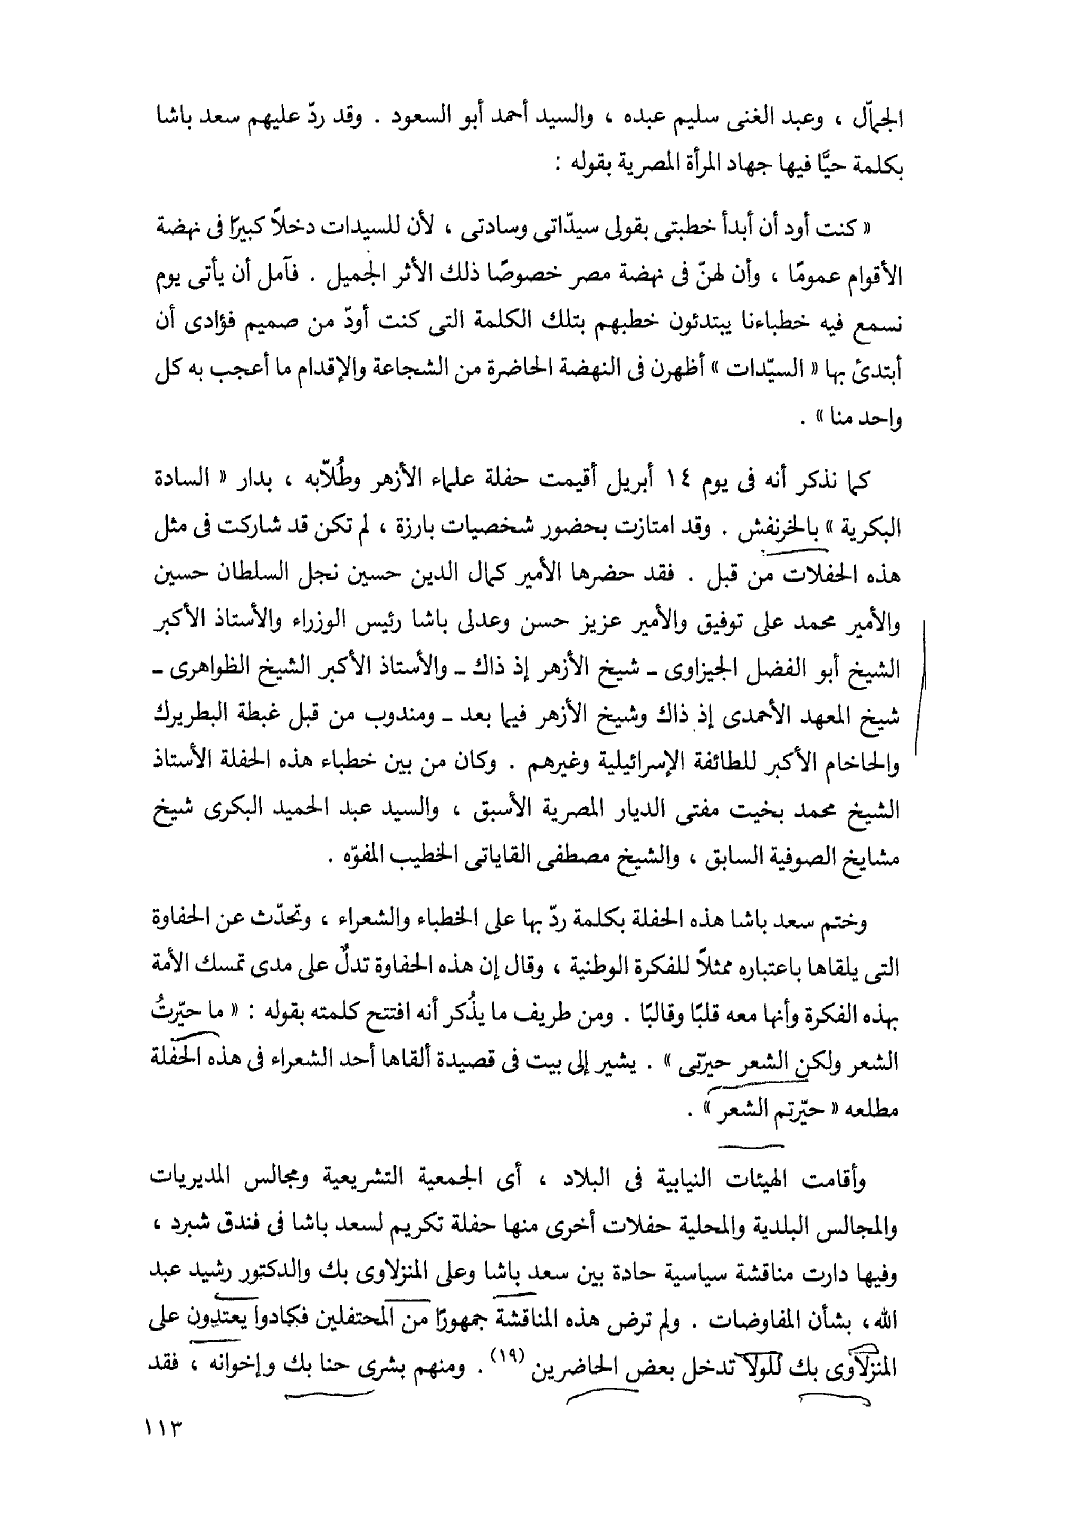 الجمّال ، وعبد الغنى سليم عبده ، والسيد أحمد أبو السعود . وقد ردّ عليهم سعد باشا
بكلمة حيَّا فيها جهاد المرأة المصرية بقوله :
« كنت أود أن أبدأ خطبتى بقولى سيدّاتى وسادتى ، لأن للسيدات دخلاً كبيرًا فى نهضة
الأقوام عمومًا ، وأن لهنّ فى نهضة مصر خصوصًا ذلك الأثر الجميل . فآمل أن يأتى يوم
نسمع فيه خطباءنا يبتدئون خطبهم بتلك الكلمة التى كنت أودّ من صميم فؤادى أن
أبتدئ بها « السيّدات » أظهرن فى النهضة الحاضرة من الشجاعة والإقدام ما أعجب به كل
واحد منا » .
كما نذكر أنه فى يوم ١٤ أبريل أقيمت حفلة علماء الأزهر وطُلّابه ، بدار « السادة
البكرية » بالخرنفش . وقد امتازت بحضور شخصيات بارزة ، لم تكن قد شاركت فى مثل
هذه الحفلات من قبل . فقد حضرها الأمير كمال الدين حسين نجل السلطان حسين
والأمير محمد على توفيق والأمير عزيز حسن وعدلى باشا رئيس الوزراء والأستاذ الأكبر
الشيخ أبو الفضل الجيزاوى ـ شيخ الأزهر إذ ذاك ـ والأستاذ الأكبر الشيخ الظواهرى ـ
شيخ المعهد الأحمدى إذ ذاك وشيخ الأزهر فيما بعد ـ ومندوب من قبل غبطة البطريرك
والحاخام الأكبر للطائفة الإسرائيلية وغيرهم . وكان من بين خطباء هذه الحفلة الأستاذ
الشيخ محمد بخيت مفتى الديار المصرية الأسبق ، والسيد عبد الحميد البكرى شيخ
مشايخ الصوفية السابق ، والشيخ مصطفى القاياتى الخطيب المفوّه .
وختم سعد باشا هذه الحفلة بكلمة ردّ بها على الخطباء والشعراء ، وتحدّث عن الحفاوة
التى يلقاها باعتباره ممثلاً للفكرة الوطنية ، وقال إن هذه الحفاوة تدلٌ على مدى تمسك الأمة
بهذه الفكرة وأنها معه قلبًا وقالبًا . ومن طريف ما يذُكر أنه افتتح كلمته بقوله : « ما حيّرتُ
الشعر ولكن الشعر حيرّنى » . يشير إلى بيت فى قصيدة ألقاها أحد الشعراء فى هذه الحفلة
مطلعه « حيّرتم الشعر » .
وأقامت الهيئات النيابية فى البلاد ، أى الجمعية التشريعية ومجالس المديريات
والمجالس البلدية والمحلية حفلات أخرى منها حفلة تكريم لسعد باشا فى فندق شبرد ،
وفيها دارت مناقشة سياسية حادة بين سعد باشا وعلى المنزلاوى بك والدكتور رشيد عبد
الله، بشأن المفاوضات . ولم ترض هذه المناقشة جمهورًا من المحتفلين فكادوا يعتدون على
المنزلاوى بك للولا تدخل بعض الحاضرين (١٩) . ومنهم بشرى حنا بك وإخوانه ، فقد
١١٣